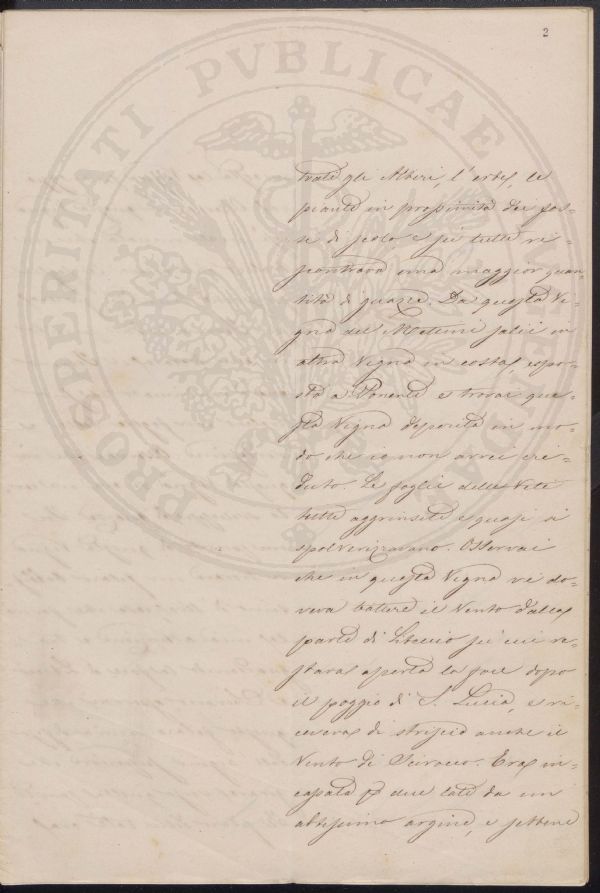 2
PROSPERITATI PVBLICAE
trate gli Alberi, l'erbe, le
piante in prossimità dei fos-
si di scolo e per tutte ri-
scontrava una maggior quan-
tità di guazze. Da questa Vi-
gna del salii in
altra Vigna in costa, espo-
sta a Ponente e trovai que-
sta Vigna deperita in mo-
do che io non avrei cre-
duto. Le foglie delle Viti
tutte aggrinzite e quasi si
spolverizzavano. Osservai
che in questa Vigna vi do-
veva battere il Vento dalla
parte di Libeccio per cui re-
stava aperta la foce dopo
il poggio di S. Lucia, e ri-
ceveva di striscio anche il
Vento di Scirocco. Era in-
cassata p due lati da un
altissimo argine, e sebbene